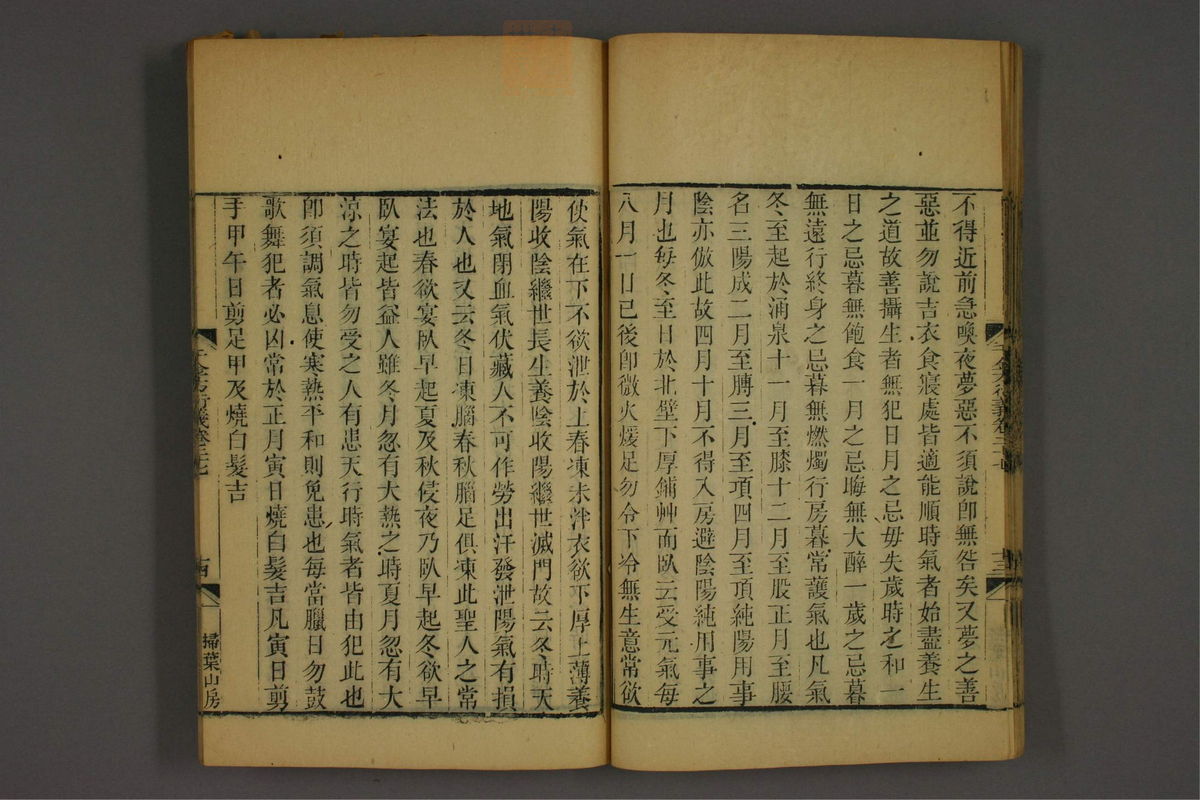 不得近前急喚夜夢惡不須說卽無咎矣又夢之善
惡並勿說吉衣食寢處皆適能順時氣者始盡養生
之道故善攝生者無犯日月之忌毋失歲時之和一
日之忌暮無飽食一月之忌晦無大醉一歲之忌暮
無遠行終身之忌暮無燃燭行房暮常護氣也凡氣
冬至起於涌泉十一月至膝十二月至股正月至腰
名三陽成二月至膊三月至項四月至頂純陽用事
陰亦倣此故四月十月不得入房避陰陽純用事之
月也每冬至日於北壁下厚鋪艸而臥云受元氣每
八月一日已後卽微火煖足勿令下冷無生意常欲
使氣在下不欲泄於上春凍未泮衣欲下厚上薄養
陽收陰繼世長生養陰收陽繼世滅門故云冬時天
地氣閉血氣伏藏人不可作勞出汗發泄陽氣有損
於人也又云冬日凍腦春秋腦足俱凍此聖人之常
法也春欲宴臥早起夏及秋侵夜乃臥早起冬欲早
臥宴起皆益人雖冬月忽有大熱之時夏月忽有大
涼之時皆勿受之人有患天行時氣者皆由犯此也
卽須調氣息使寒熱平和則免患也每當臘日勿鼓
歌舞犯者必凶常於正月寅日燒白髮吉凡寅日剪
手甲午日剪足甲及燒白髮吉
掃葉山房